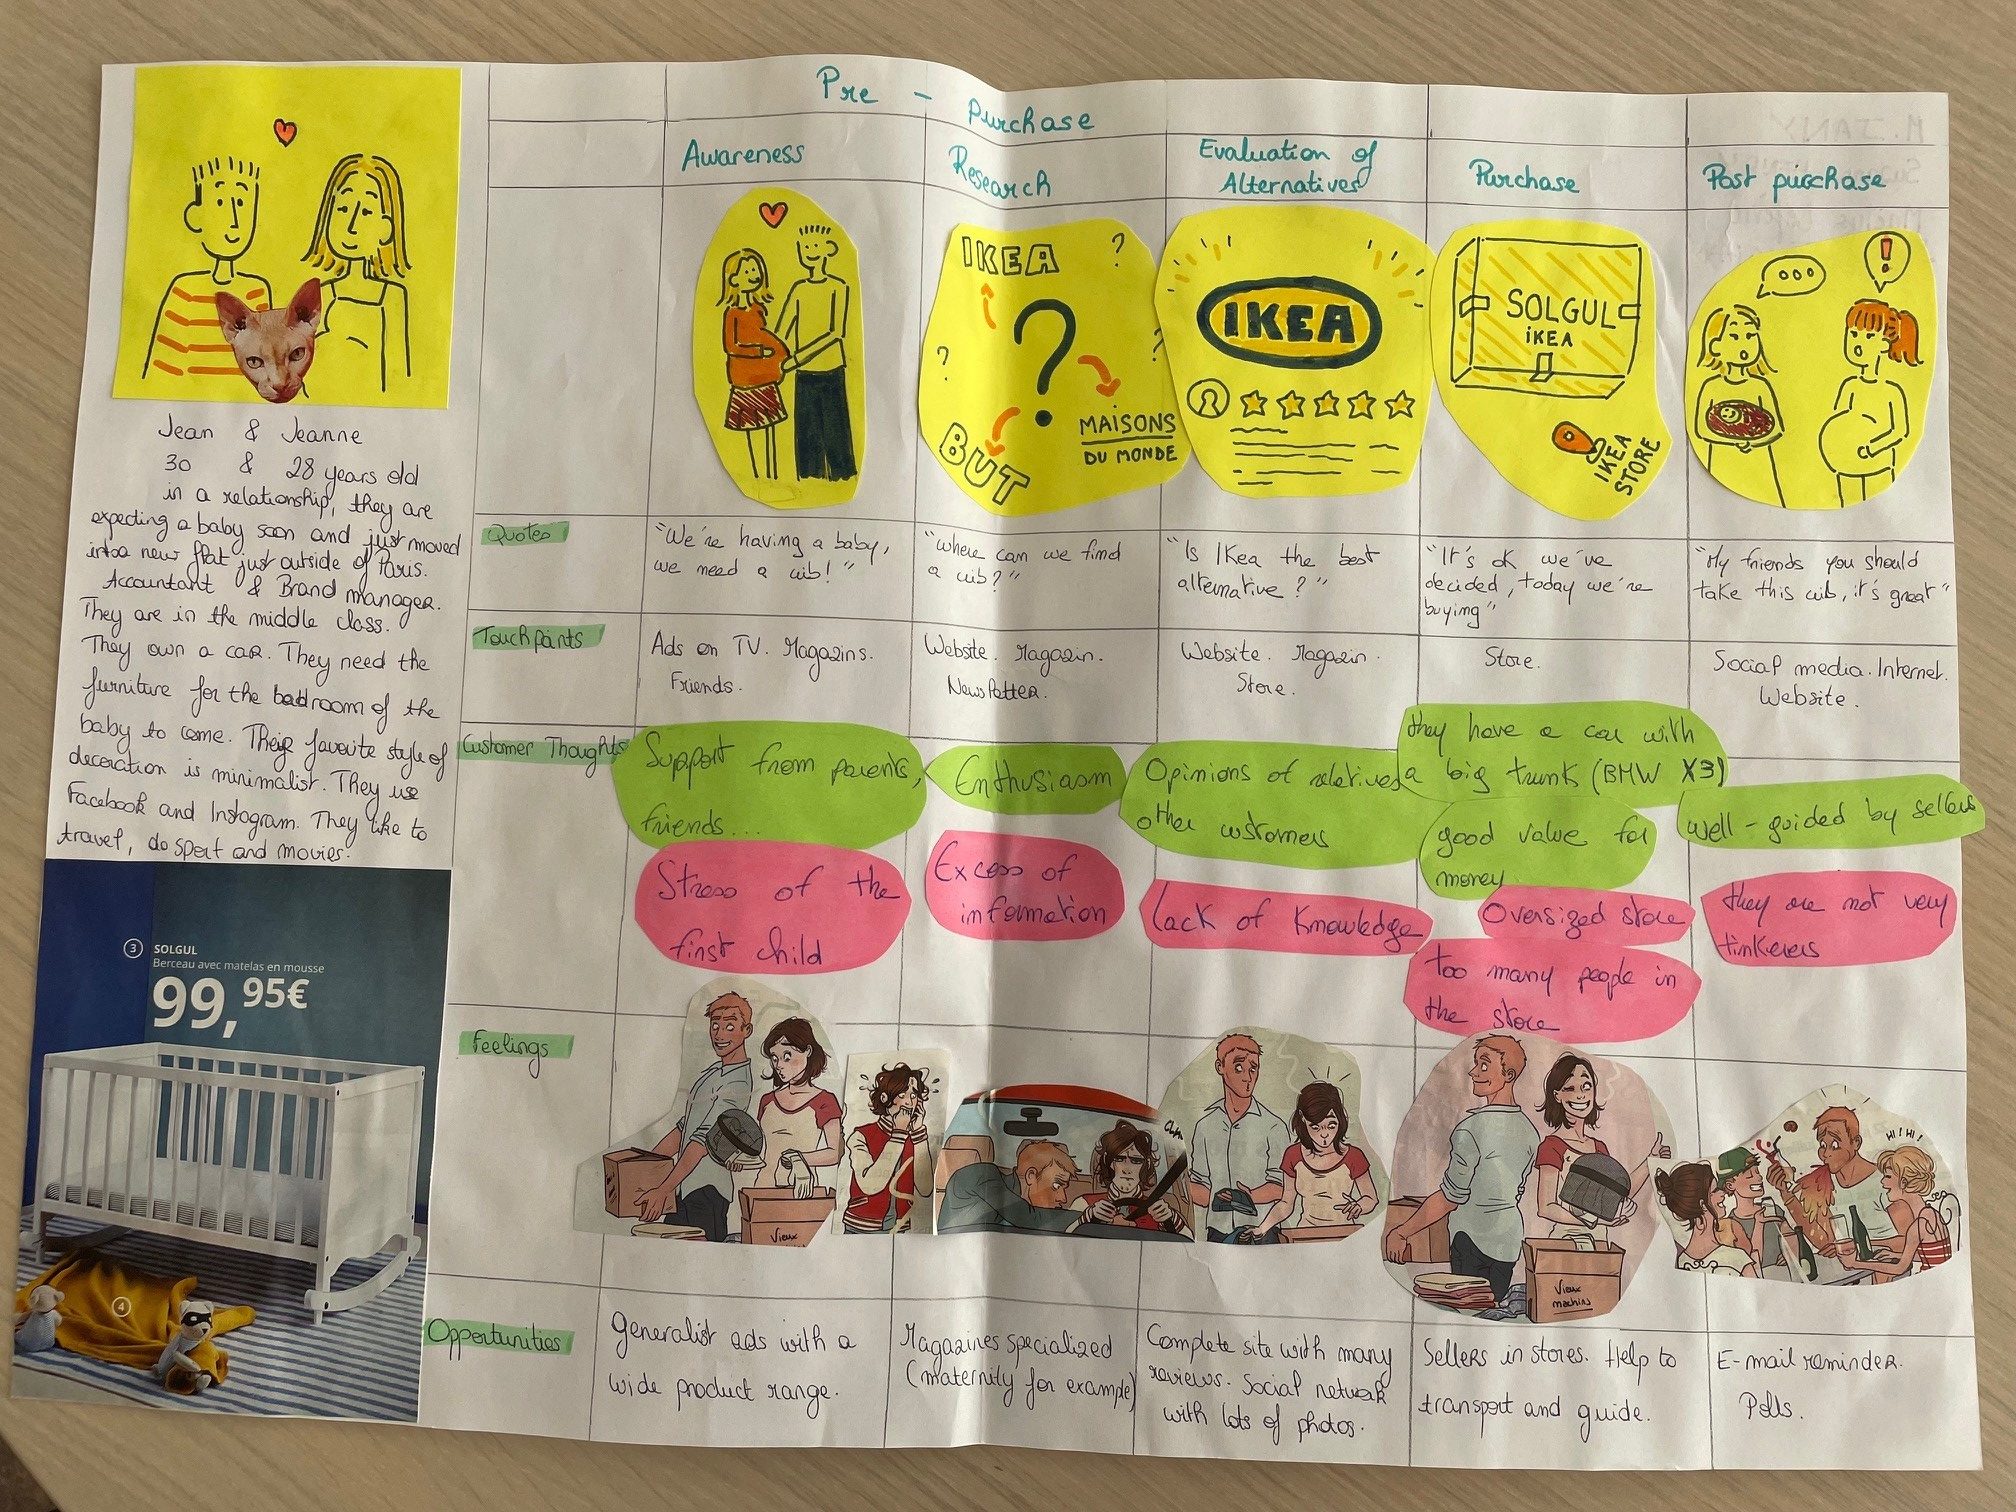 Pre - Purchase
Awareness
Research
Evaluation of
Alternatives
Purchase
Post purchase
IKEA
?
?
?
?
BUT
MAISONS
DU MONDE
IKEA
SOLGUL
IKEA
IKEA
STORE
...
!
Jean & Jeanne
30 & 28 years old
in a relationship, they are
expecting a baby soon and just moved
into a new flat just outside of Paris.
Accountant & Brand manager.
They are in the middle class.
They own a car. They need the
furniture for the badroom of the
baby to come. Their favorite style of
decoration is minimalist. They use
Facebook and Instagram. They like to
travel, do sport and movies.
3 SOLGUL
Berceau avec matelas en mousse
99,95€
4
Quotes
"We're having a baby,
we need a crib!"
"where can we find
a crib?"
"Is IKea the best
alternative?"
"It's ok we've
decided, today we're
buying"
"My friends you should
take this crib, it's great"
Touchpoints
Ads on TV. Magazins.
Friends.
Website. Magazin.
Newsletter.
Website. Magazin.
Store.
Store.
Social media. Internet.
Website.
Customer Thoughts
Support from parents,
friends...
Stress of the
first child
Enthusiasm
Excess of
information
Opinions of relatives
other customers
lack of knowledge
they have a car with
a big trunk (BMW X3)
good value for
money
Oversized store
too many people in
the store
well-guided by sellers
they are not very
tinkerers
Feelings
Vieux
Vieux
machins
HI! HI!
Opportunities
Generalist ads with a
wide product range.
Magazines specialized
(maternity for example)
Complete site with many
reviews. Social network
with lots of photos.
Sellers in stores. Help to
transport and guide.
E-mail reminder.
Polls.